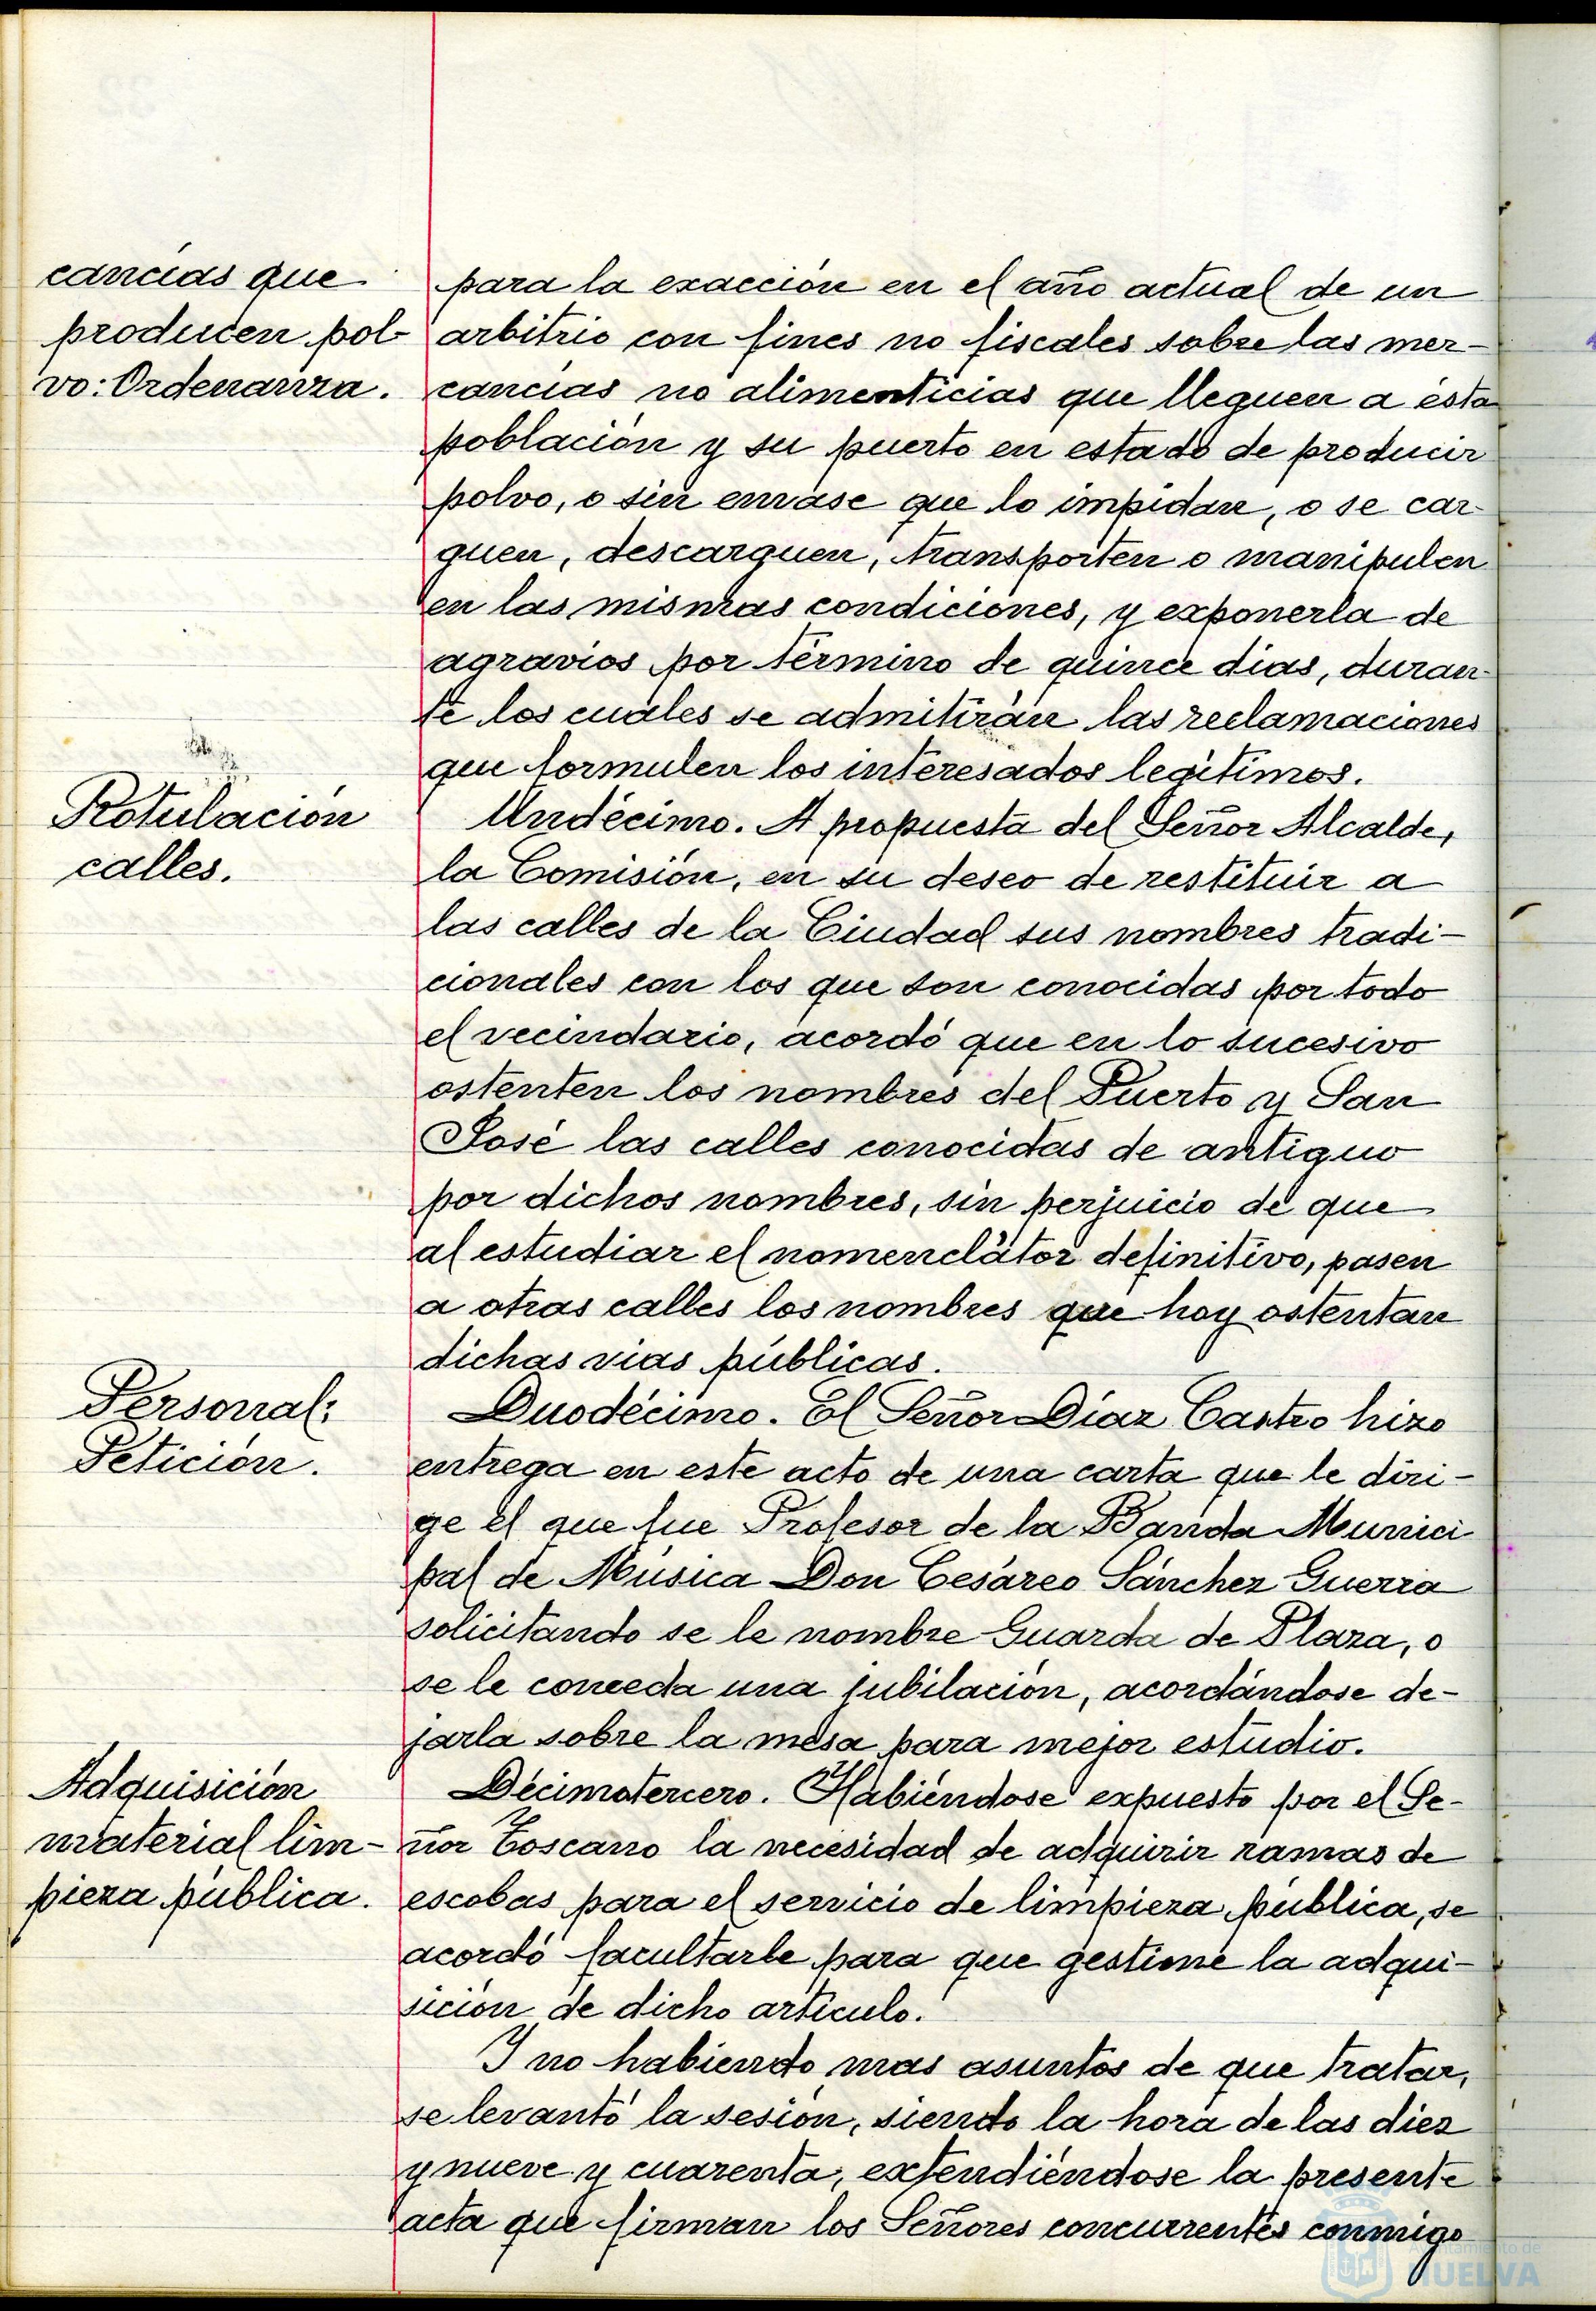 cancías que
producen pol-
vo: Ordenanza.
para la exacción en el año actual de un
arbitrio con fines no fiscales sobre las mer-
cancías no alimenticias que lleguen a ésta
población y su puerto en estado de producir
polvo, o sin envase que lo impidan, o se car-
guen, descarguen, transporten o manipulen
en las mismas condiciones, y exponerla de
agravios por término de quince dias, duran-
te los cuales se admitirán las reclamaciones
que formulen los interesados legítimos.
Rotulación
calles.
Undécimo. A propuesta del Señor Alcalde,
la Comisión, en su deseo de restituir a
las calles de la Ciudad sus nombres tradi-
cionales con los que son conocidas por todo
el vecindario, acordó que en lo sucesivo
ostenten los nombres del Puerto y San
José las calles conocidas de antiguo
por dichos nombres, sin perjuicio de que
al estudiar el nomenclátor definitivo, pasen
a otras calles los nombres que hoy ostentan
dichas vias públicas.
Personal:
Petición.
Duodécimo. El Señor Díaz Castro hizo
entrega en este acto de una carta que le diri-
ge el que fue Profesor de la Banda Munici
pal de Música Don Cesáreo Sánchez Guerra
solicitando se le nombre Guarda de Plaza, o
se le conceda una jubilación, acordándose de-
jarla sobre la mesa para mejor estudio.
Adquisición
material lim-
pieza pública.
Décimotercero. Habiéndose expuesto por el Se-
ñor Toscano la necesidad de adquirir ramas de
escobas para el servicio de limpieza pública, se
acordó facultarle para que gestione la adqui-
sición de dicho artículo.
Y no habiendo mas asuntos de que tratar,
se levantó la sesión, siendo la hora de las diez
y nueve y cuarenta, extendiéndose la presente
acta que firman los Señores concurrentes conmigo
Ayuntamiento de
HUELVA